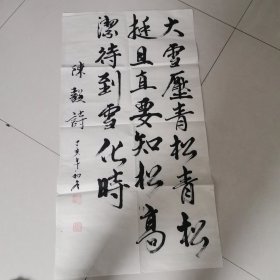 大雪壓青松青松
挺且直要知松高
潔待到雪化時
陳毅詩
丁亥年初冬